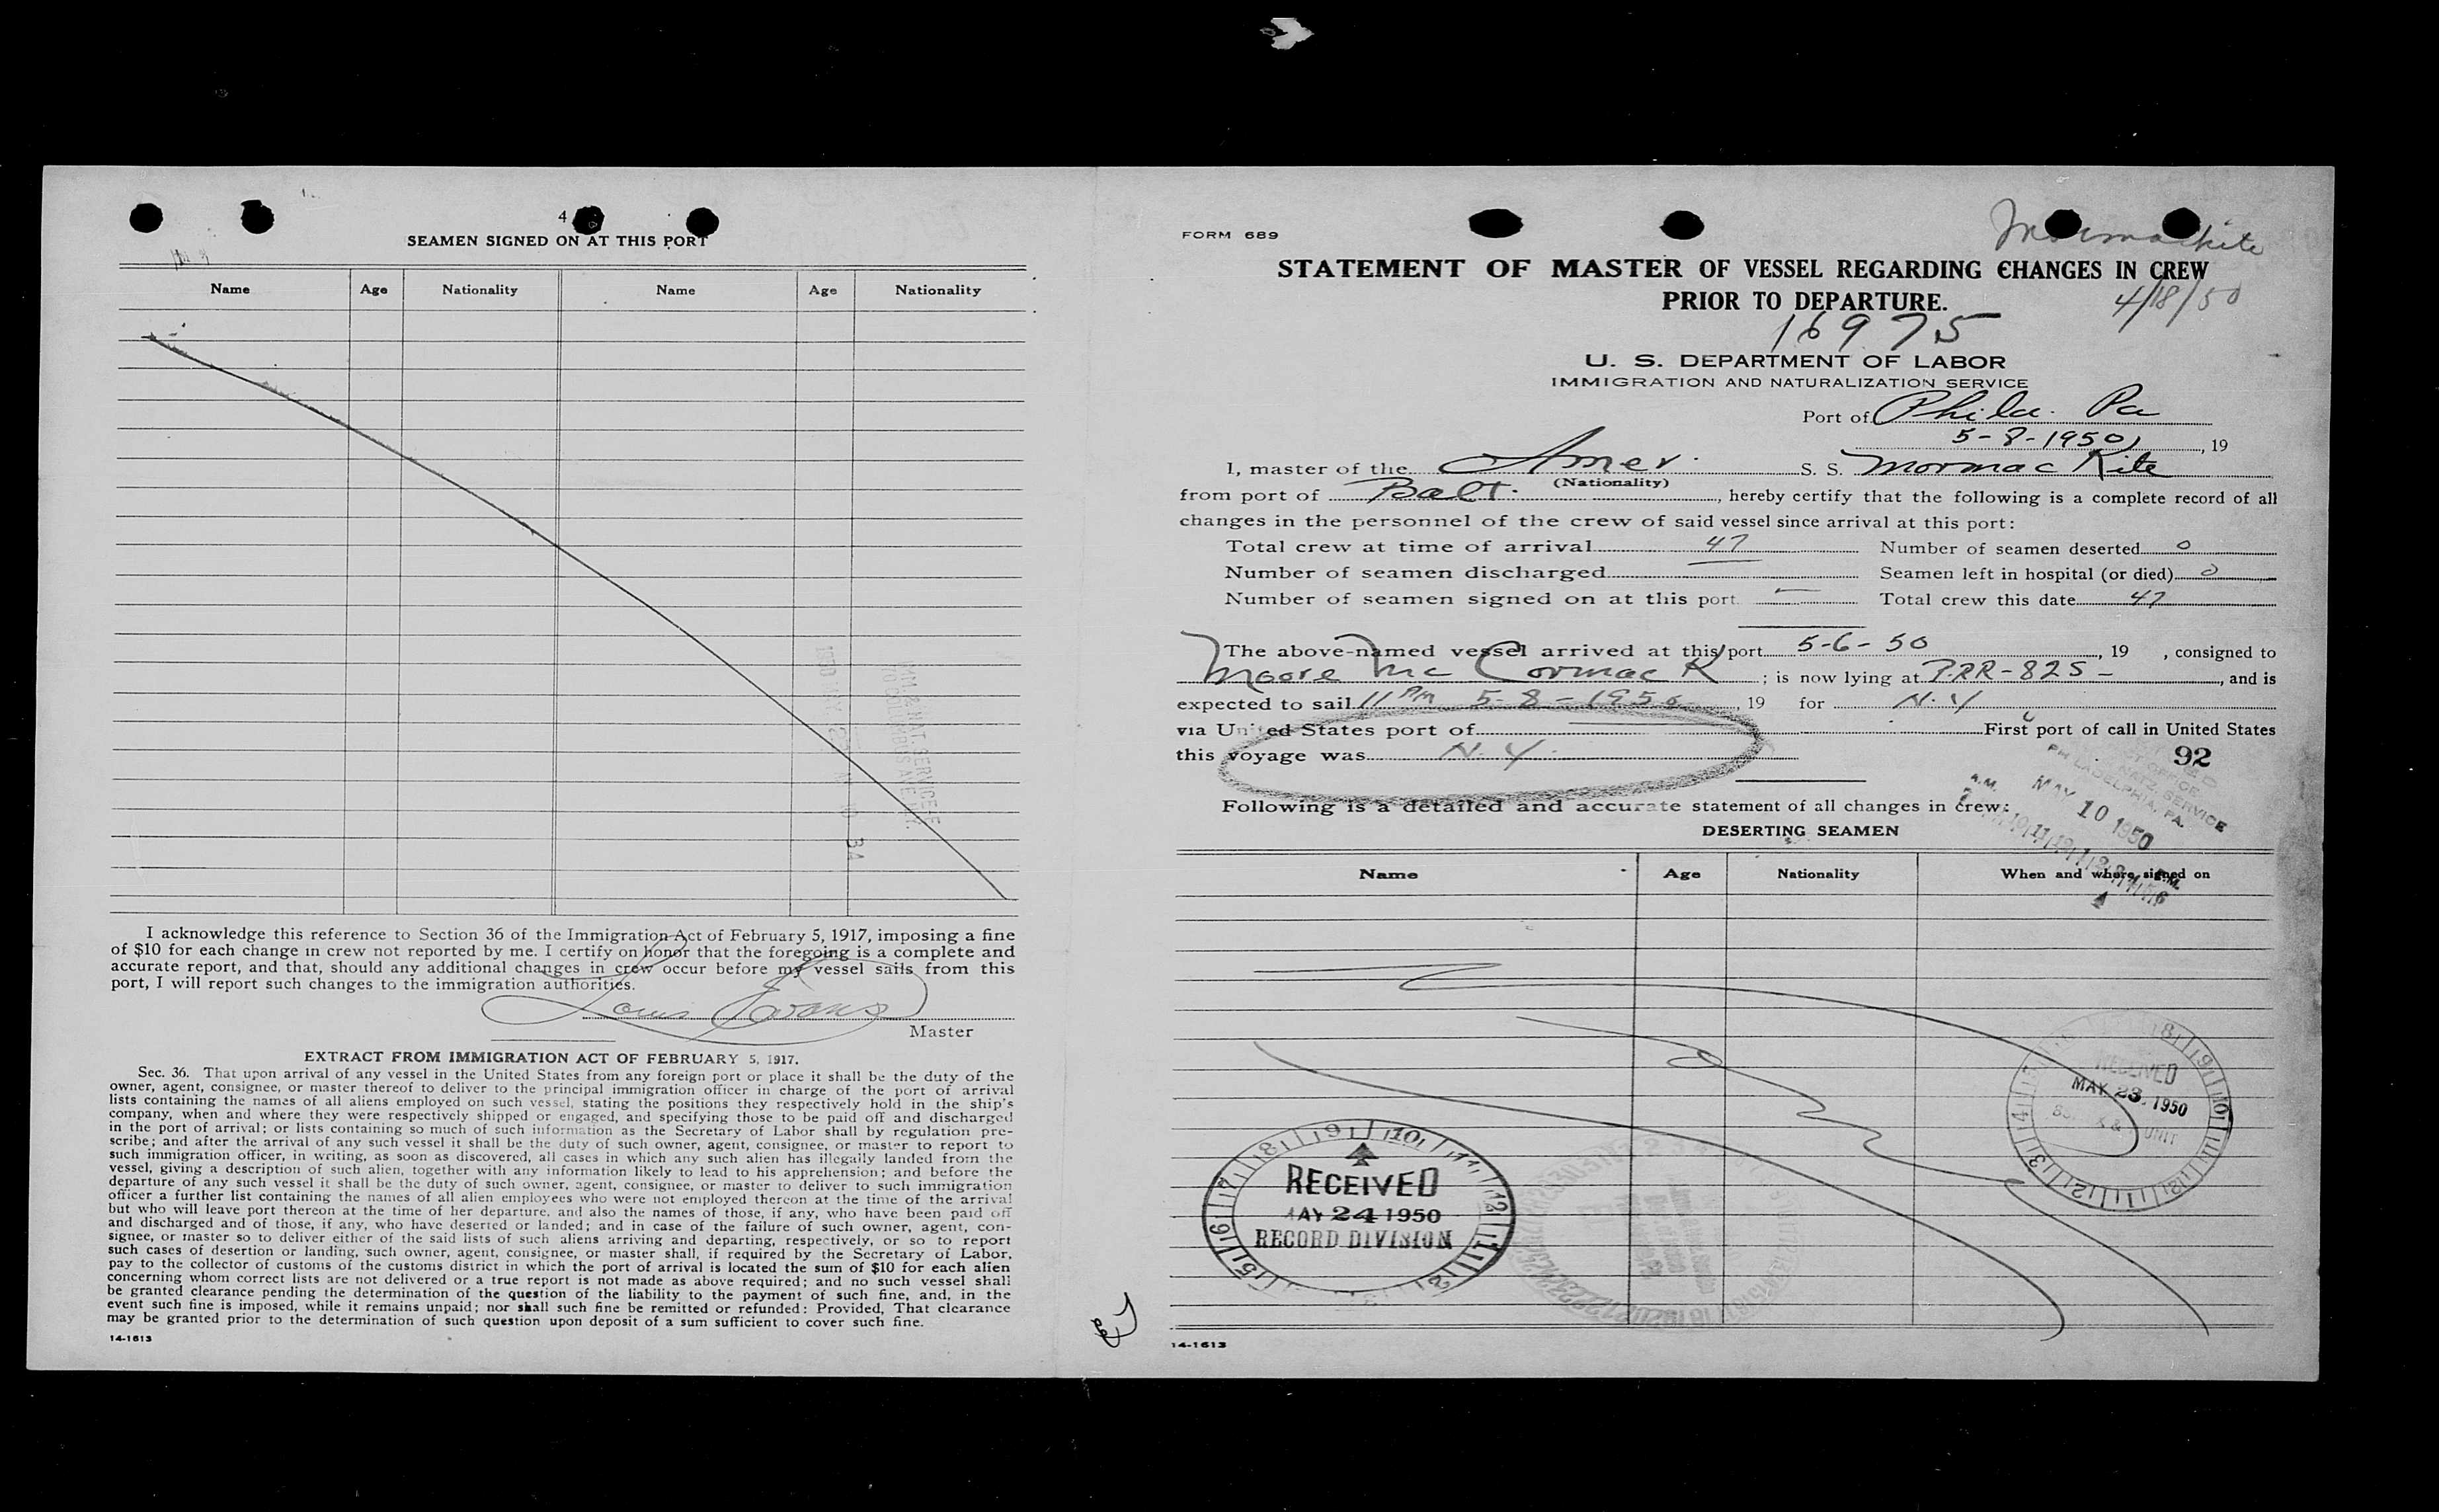 4
SEAMEN SIGNED ON AT THIS PORT
Name Age Nationality Name Age Nationality
I acknowledge this reference to Section 36 of the Immigration Act of February 5, 1917, imposing a fine
of $10 for each change in crew not reported by me. I certify on honor that the foregoing is a complete and
accurate report, and that, should any additional changes in crew occur before my vessel sails from this
port, I will report such changes to the immigration authorities.
Louis Evans
Master
EXTRACT FROM IMMIGRATION ACT OF FEBRUARY 5, 1917.
Sec. 36. That upon arrival of any vessel in the United States from any foreign port or place it shall be the duty of the
owner, agent, consignee, or master thereof to deliver to the principal immigration officer in charge of the port of arrival
lists containing the names of all aliens employed on such vessel, stating the positions they respectively hold in the ship's
company, when and where they were respectively shipped or engaged, and specifying those to be paid off and discharged
in the port of arrival; or lists containing so much of such information as the Secretary of Labor shall by regulation pre-
scribe; and after the arrival of any such vessel it shall be the duty of such owner, agent, consignee, or master to report to
such immigration officer, in writing, as soon as discovered, all cases in which any such alien has illegally landed from the
vessel, giving a description of such alien, together with any information likely to lead to his apprehension; and before the
departure of any such vessel it shall be the duty of such owner, agent, consignee, or master to deliver to such immigration
officer a further list containing the names of all alien employees who were not employed thereon at the time of the arrival
but who will leave port thereon at the time of her departure, and also the names of those, if any, who have been paid off
and discharged and of those, if any, who have deserted or landed; and in case of the failure of such owner, agent, con-
signee, or master so to deliver either of the said lists of such aliens arriving and departing, respectively, or so to report
such cases of desertion or landing, such owner, agent, consignee, or master shall, if required by the Secretary of Labor,
pay to the collector of customs of the customs district in which the port of arrival is located the sum of $10 for each alien
concerning whom correct lists are not delivered or a true report is not made as above required; and no such vessel shall
be granted clearance pending the determination of the question of the liability to the payment of such fine, and, in the
event such fine is imposed, while it remains unpaid; nor shall such fine be remitted or refunded: Provided, That clearance
may be granted prior to the determination of such question upon deposit of a sum sufficient to cover such fine.
14-1613
FORM 689
Mormackite
STATEMENT OF MASTER OF VESSEL REGARDING CHANGES IN CREW
PRIOR TO DEPARTURE.
4/18/50
16975
U. S. DEPARTMENT OF LABOR
IMMIGRATION AND NATURALIZATION SERVICE
Port of Phila. Pa
5-8-1950, 19
I, master of the Amer. S. S. Mormac Kite
(Nationality)
from port of Balt., hereby certify that the following is a complete record of all
changes in the personnel of the crew of said vessel since arrival at this port:
Total crew at time of arrival 47 Number of seamen deserted 0
Number of seamen discharged Seamen left in hospital (or died) 0
Number of seamen signed on at this port — Total crew this date 47
The above-named vessel arrived at this port 5-6-50, 19 , consigned to
Moore Mc Cormack; is now lying at P.RR-825-, and is
expected to sail 11 PM 5-8-1950, 19 for N.Y
via United States port of First port of call in United States
this voyage was N.Y.
92
Following is a detailed and accurate statement of all changes in crew:
PHILADELPHIA, PA.
A.M. MAY 10 1950 P.M.
DESERTING SEAMEN
Name Age Nationality When and where signed on
RECEIVED
MAY 23 1950
UNIT
RECEIVED
MAY 24 1950
RECORD DIVISION
14-1613